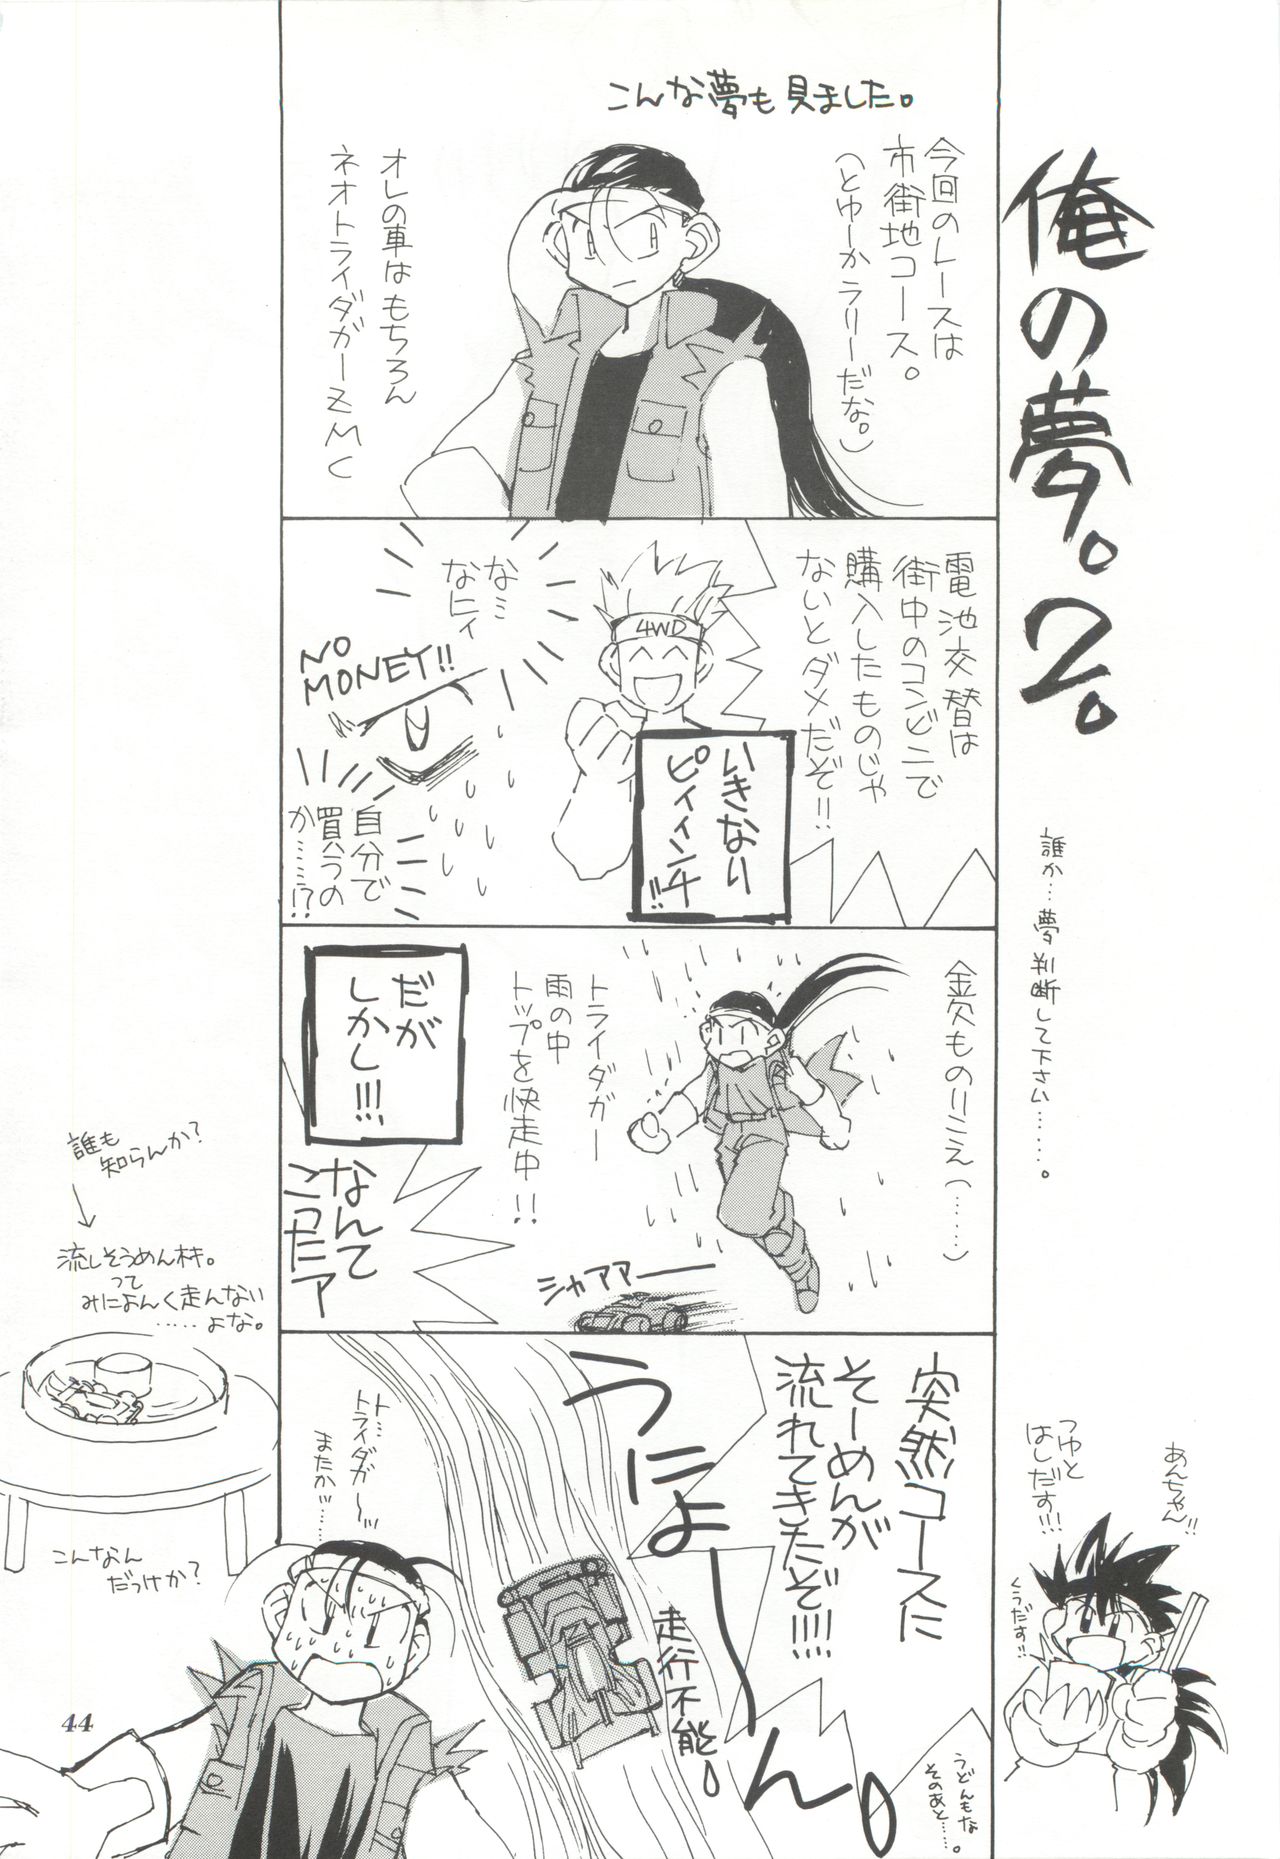 俺の夢。2。
誰か…夢判断して下さい……。
こんな夢も見ました。
今回のレースは
市街地コース。
(とゆーかラリーだな。)
オレの車はもちろん
ネオトライダガーZMC
電池交替は
街中のコンビニで
購入したものじゃ
ないとダメだぞ!!
4WD
いきなり
ピィィンチ!!
なミ
なにィ
NO
MONEY!!
自分で
買うの
か……!?
トライダガー
雨の中
トップを快走中!!
シャアアー
だが
しかし!!!
なんて
こったア
突然コースに
そーめんが
流れてきたぞ!!!!
うにょーーん。
走行不能。
うどんもな
そのあと……。
ト…
トライダガ〜
またか……
あんちゃん!!
つゆと
はしだす!!!
くうだす!!
誰も
知らんか?
流しそうめん木キ。
って
みによんく走んない
……よな。
こんなん
だっけか?
44